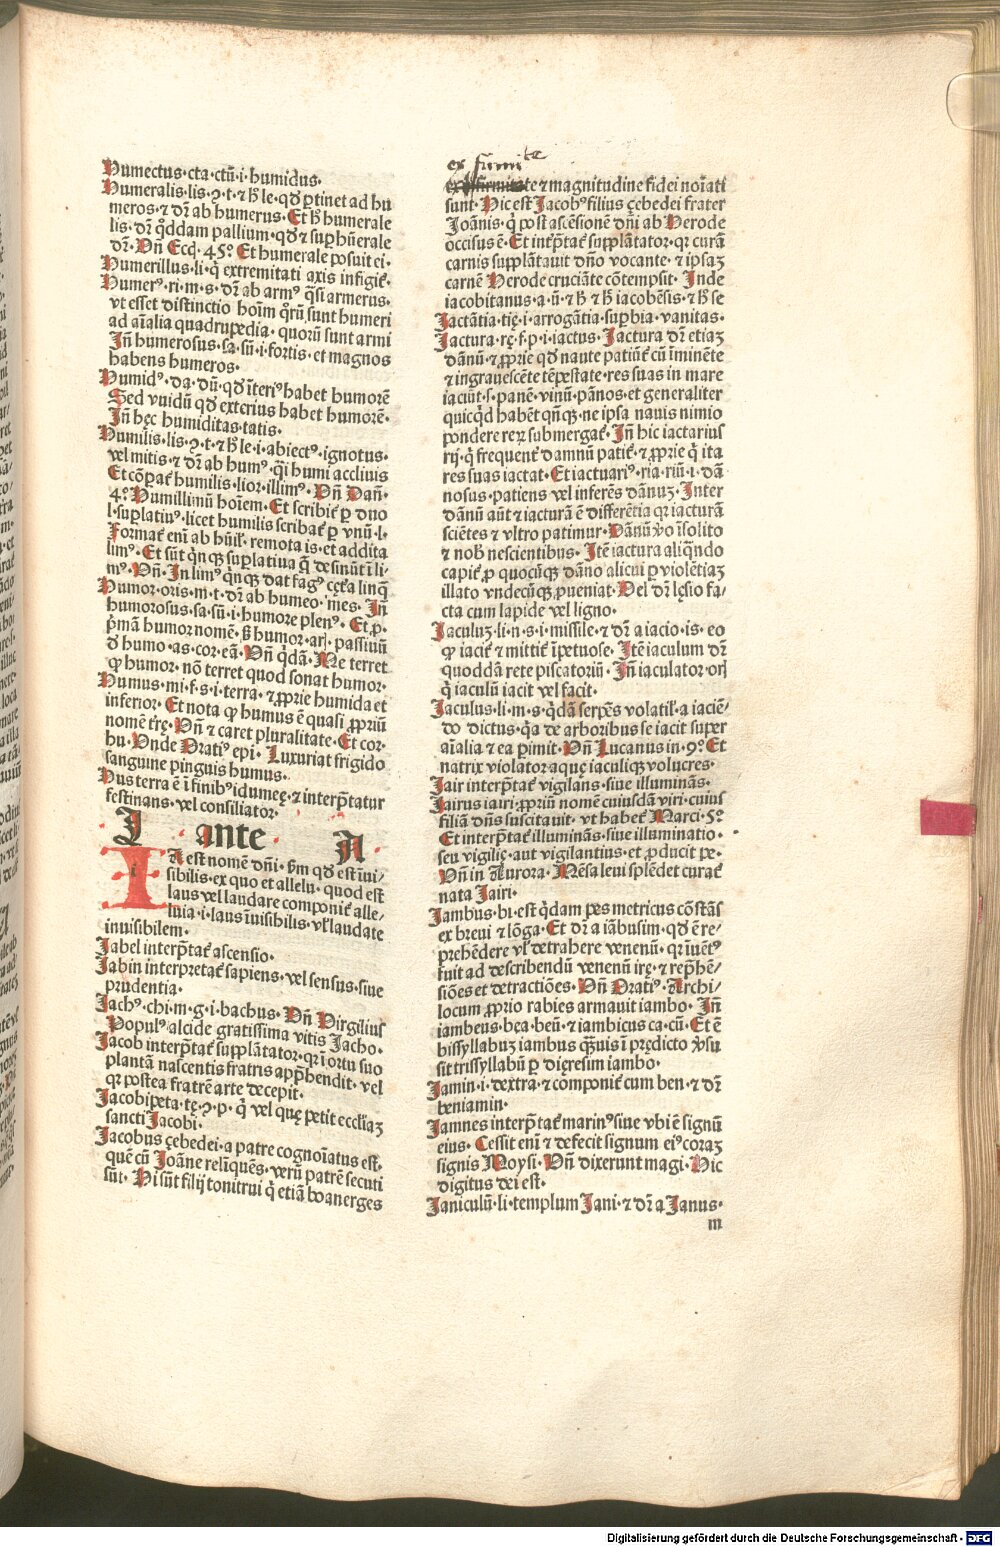 Humectus·cta·ctū·i·humidus·
Humeralis·lis·ꝯ·t·⁊ hͦ le·qđ ꝑtinet ad hu
meros·⁊ dr̄ ab humerus·Et hͦ humerale
lis·dr̄ qͦddam pallium·qđ ⁊ suꝑhūerale
dr̄·Vn̄ Ecc̄i·45°·Et humerale posuit ei·
Humerillus·li·q̄ extremitati axis infigit̄·
Humerꝰ·ri·m·s·dr̄ ab armꝰ q̄si armerus·
vt esset distinctio hoīm qͦrū sunt humeri
ad aīalia quadrupedia·quorū sunt armi
Jn̄ humerosus·sa·sū·i·fortis·et magnos
habens humeros·
Humidꝰ·da·dū·qđ īteriꝰ habet humorē
Sed vuidū qđ exterius habet humorē·
Jn̄ hęc humiditas·tatis·
Humilis·lis·ꝯ·t·⁊ hͦ le·i·abiectꝰ·ignotus·
vel mitis·⁊ dr̄ ab humꝰ·q̄i humi accliuis
Et cōꝑat̄ humilis·lior·illimꝰ·Vn̄ Dan̄·
4°·Humillimū hoīem·Et scribit̄ ꝑ duo
l·suꝑlatiuꝰ·licet humilis scribat̄ ꝑ vnū·l·
Format̄ enī ab hūil̄·remota is·et addita
limꝰ·Et sūt qͥnqꝫ suꝑlatiua q̄ desinūt ī li-
mꝰ·Vn̄·Jn limꝰ qͥnqꝫ dat fagꝰ cęt̄a linq̄
Humor·oris·m·t·dr̄ ab humeo·mes·Jn̄
humorosus·sa·sū·i·humore plenꝰ·Et ꝓ·
p̄mā humor nomē·ß humor·arꝭ·passiuū
đ humo·as·cor·eā·Vn̄ qͥdā·Me terret
ꝙ humor·nō terret quod sonat humor·
Humus·mi·f·s·i·terra·⁊ ꝓprie humida et
inferior·Et nota ꝙ humus ē quasi ꝓpriū
nomē t̄rę·Vn̄ ⁊ caret pluralitate·Et cor·
hu·Vnde Oratiꝰ epi·Luxuriat frigido
sanguine pinguis humus·
Hus terra ē ī finibꝰ idumeę·⁊ interp̄tatur
festinans·vel consiliator·
J ante A
JA est nomē dn̄i·v̄m qđ est īui-
sibilis·ex quo et allelu·quod est
laus vel laudare componit̄ alle-
luia·i·laus īuisibilis·vl̄ laudate
inuisibilem·
Jabel interp̄tat̄ ascensio·
Jabin interpretat̄ sapiens·vel sensus·siue
prudentia·
Jachꝰ·chi·m·g·i·bachus·Vn̄ Virgilius
Populꝰ alcide gratissima vitis Jacho·
Jacob interp̄tat̄ suppl̄atator·qꝛ ī ortu suo
plantā nascentis fratris app̄hendit·vel
qꝛ postea fratrē arte decepit·
Jacobipeta·tę·ꝯ·p·q̄ vel quę petit eccl̄iaꝫ
sancti Jacobi·
Jacobus çebedei·a patre cognoīatus est·
quē cū Joāne reliq̄uēs·verū patrē secuti
sūt·Hi sūt filij tonitrui q̄ etiā boanerges
ex firmite
te ⁊ magnitudine fidei noīati
sunt·Hic est Jacobꝰ filius çebedei frater
Joānis·q̄ post ascēsionē dn̄i ab Herode
occisus ē·Et int̄p̄tat̄ suppl̄atator·qꝛ curā
carnis suppl̄atauit dn̄o vocante·⁊ ipsaꝫ
carnē Herode cruciāte cōtempsit·Jnde
iacobitanus·a·ū·⁊ hͦ ⁊ hͦ iacobēsis·⁊ hͦ se
Jactātia·tię·i·arrogātia·suꝑbia·vanitas·
Jactura·rę·f·p·i·iactus·Jactura dr̄ etiaꝫ
dānū·⁊ ꝓprie qđ naute patiūt̄ cū iminēte
⁊ ingrauescēte tēpestate·res suas in mare
iaciūt·s·panē·vinū·pānos·et generaliter
quicqͥd habēt qn̄qꝫ·ne ipsa nauis nimio
pondere reꝝ submergat̄·Jn̄ hic iactarius
rij·q̄ frequent̄ damnū patit̄·⁊ ꝓprie q̄ ita
res suas iactat·Et iactuariꝰ·ria·riū·i·dā
nosus·patiens vel inferēs dānuꝫ·Jnter
dānū aūt ⁊ iacturā ē differētia qꝛ iacturā
sciētes ⁊ vltro patimur·Dānū v̊o īsolito
⁊ nob̄ nescientibus·Jtē iactura aliqn̄do
capit̄ ꝓ quocūqꝫ dāno alicui ꝑ violētiaꝫ
illato vndecūqꝫ ꝓueniat·Vel dr̄ lęsio fa-
cta cum lapide vel ligno·
Jaculuꝫ·li·n·s·i·missile·⁊ dr̄ a iacio·is·eo
ꝙ iacit̄ ⁊ mittit̄ īpetuose·Jtē iaculum dr̄
quoddā rete piscatoriū·Jn̄ iaculator·orꝭ
q̄ iaculū iacit vel facit·
Jaculus·li·m·s·qͥdā serpēs volatil̄·a iaciē-
do dictus·qͥa de arboribus se iacit super
aīalia ⁊ ea pimit·Vn̄ Lucanus in·9°·Et
natrix violator aquę iaculiqꝫ volucres·
Jair interp̄tat̄ vigilans·siue illuminās·
Jairus iairi·ꝓpriū nomē cuiusdā viri·cuius
filiā dn̄s suscitauit·vt habet̄ Marci·5°·
Et interp̄tat̄ illuminās·siue illuminatio·
seu vigilię·aut vigilantius·et ꝓducit pe·
Vn̄ in Aurora·Mēsa leui splēdet curat̄
nata Jairi·
Jambus·bi·est qͥdam pes metricus cōstās
ex breui ⁊ lōga·Et dr̄ a iābusim·qđ ē re-
prehēdere vl̄ detrahere venenū·qꝛ iuētꝰ
fuit ad describendū venenū irę·⁊ rep̄hē-
siōes et detractiōes·Vn̄ Oratiꝰ·Archi-
locum ꝓprio rabies armauit iambo·Jn̄
iambeus·bea·beū·⁊ iambicus·ca·cū·Et ē
bissyllabuꝫ iambus qͣꝫuis ī p̄dicto v̊su
sit trissyllabū ꝑ digresim iambo·
Jamin·i·dextra·⁊ componit̄ cum ben·⁊ dr̄
beniamin·
Jamnes interp̄tat̄ marinꝰ siue vbi ē signū
eius·Cessit enī ⁊ defecit signum eiꝰ coraꝫ
signis Moysi·Vn̄ dixerunt magi·Hic
digitus dei est·
Janiculū·li·templum Jani·⁊ dr̄ a Janus·
m
Digitalisierung gefördert durch die Deutsche Forschungsgemeinschaft - DFG